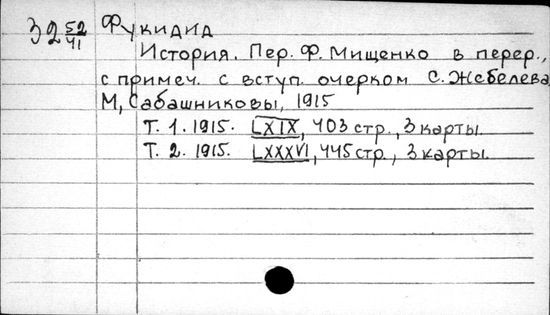 З2 52/41 Фукидид
История. Пер. Ф. Мищенко в перер.,
с примеч. с вступ. очерком С. Жебелева
М, Сабашниковы, 1915
Т. 1. 1915. LXIX, 403 стр., 3 карты.
Т. 2. 1915. LXXXVI, 445 стр., 3 карты.